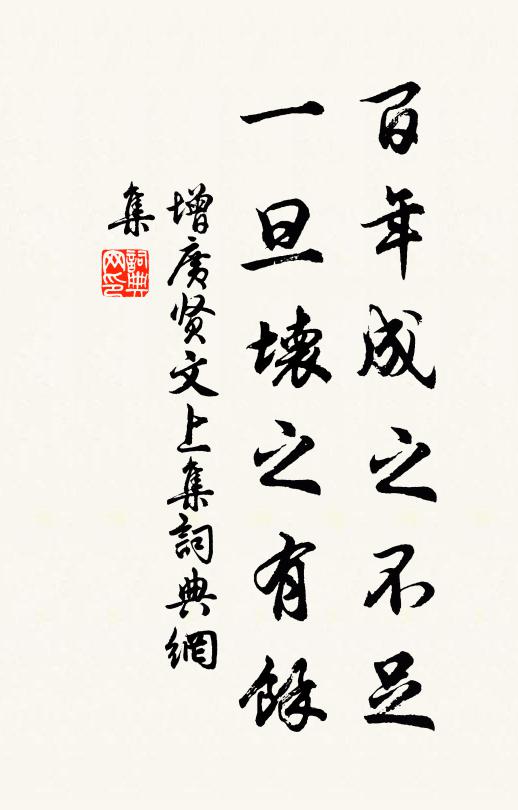 百年成之不足
一旦壞之有餘
增廣贤文上集詞典網
集
詞典網印